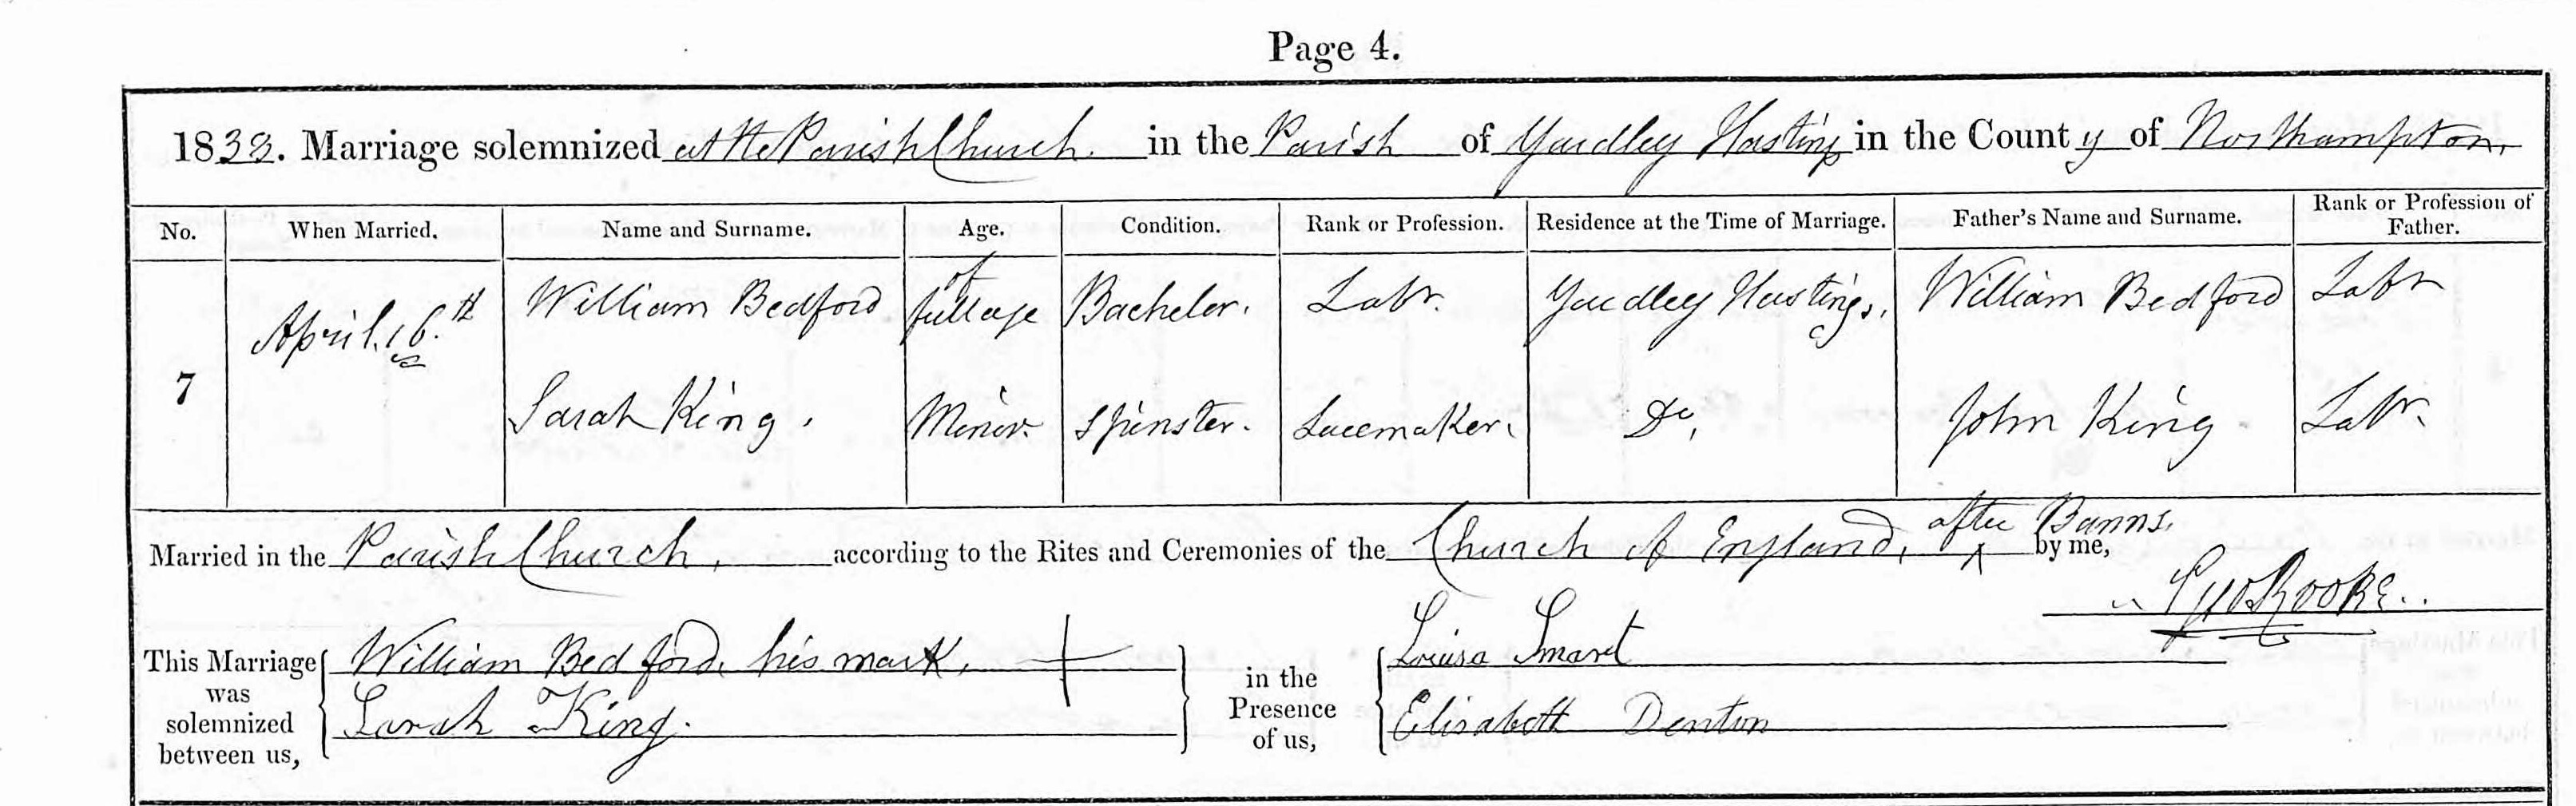 Page 4.
1838. Marriage solemnized at the Parish Church in the Parish of Yardley Hastings in the County of Northampton.
No. When Married. Name and Surname. Age. Condition. Rank or Profession. Residence at the Time of Marriage. Father's Name and Surname. Rank or Profession of Father.
7 April 16th William Bedford of full age Bachelor. Labr. Yardley Hastings. William Bedford Labr
Sarah King. Minor. Spinster. Lacemaker. Do. John King Labr.
Married in the Parish Church, according to the Rites and Ceremonies of the Church of England, after Banns. by me,
Rooke.
This Marriage was solemnized between us, William Bedford, his mark, in the Presence of us, Louisa Smart
Sarah King. Elisabeth Denton